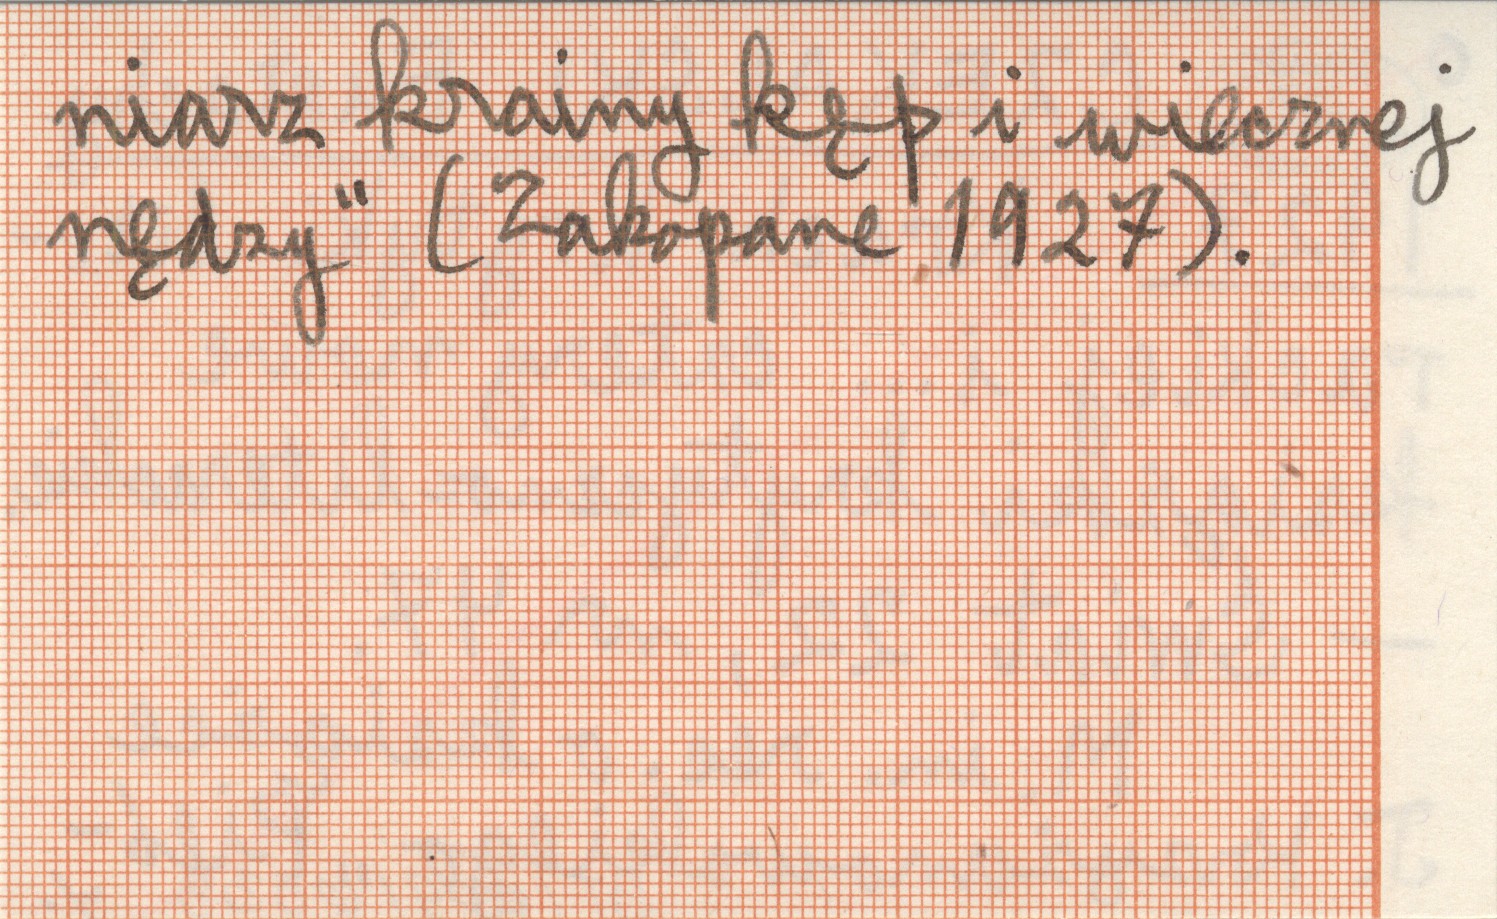 niarz krainy kęp i wiecznej
nędzy" (Zakopane 1927).